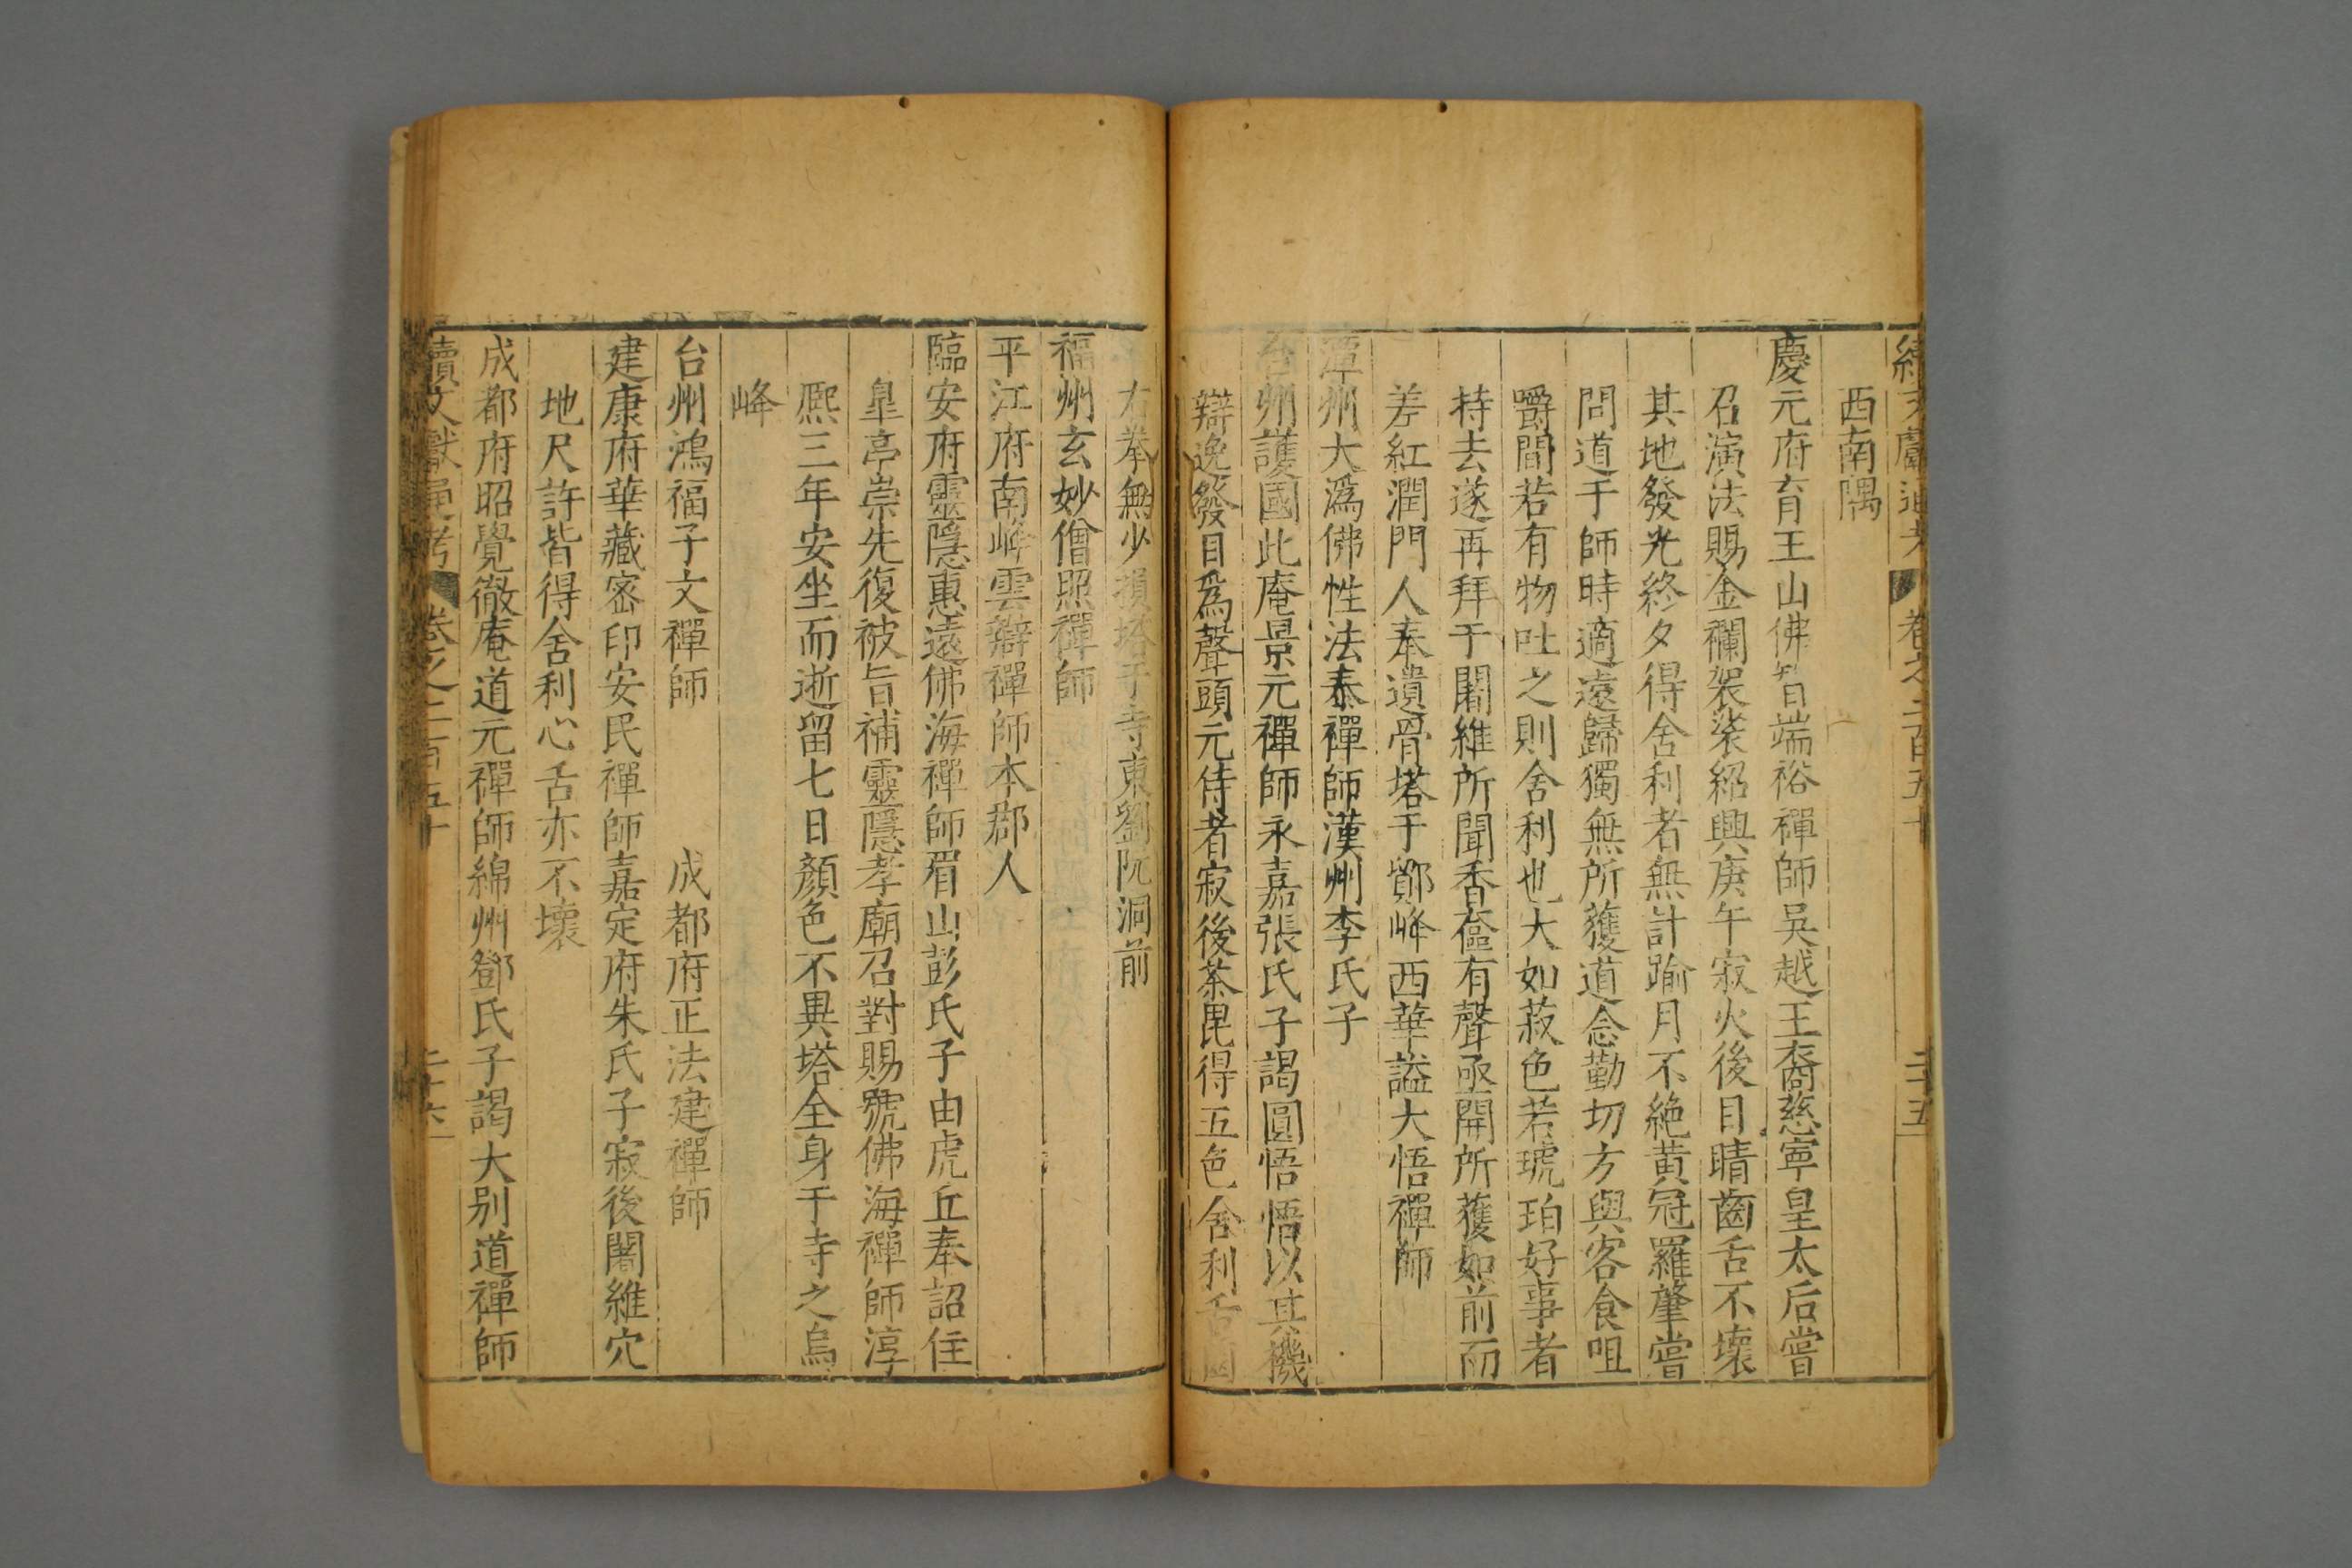 續文獻通考 卷之二百五十 二十五
西南隅
慶元府育王山佛智端裕禪師吳越王裔慈寧皇太后嘗
召演法賜金襴袈裟紹興庚午寂火後目睛齒舌不壞
其地發光終夕得舍利者無計踰月不絶黃冠羅肇嘗
問道于師時適遠歸獨無所獲道念勤切方與客食咀
嚼間若有物吐之則舍利也大如菽色若琥珀好事者
持去遂再拜于闍維所聞香奩有聲亟開所獲如前而
差紅潤門人奉遺骨塔于鄮峰西華謚大悟禪師
潭州大潙佛性法泰禪師漢州李氏子
台州護國此庵景元禪師永嘉張氏子謁圓悟悟以其機
辯逸發目爲聱頭元侍者寂後茶毘得五色舍利舌
右拳無少損塔于寺東劉阮洞前
福州玄妙僧照禪師
平江府南峰雲辯禪師本郡人
臨安府靈隱惠遠佛海禪師眉山彭氏子由虎丘奉詔住
皐亭崇先復被旨補靈隱孝廟召對賜號佛海禪師淳
熈三年安坐而逝留七日顏色不異塔全身于寺之烏
峰
台州鴻福子文禪師 成都府正法建禪師
建康府華藏密印安民禪師嘉定府朱氏子寂後闍維穴
地尺許皆得舍利心舌亦不壞
成都府昭覺徹庵道元禪師綿州鄧氏子謁大别道禪師
續文獻通考 卷之二百五十 二十六